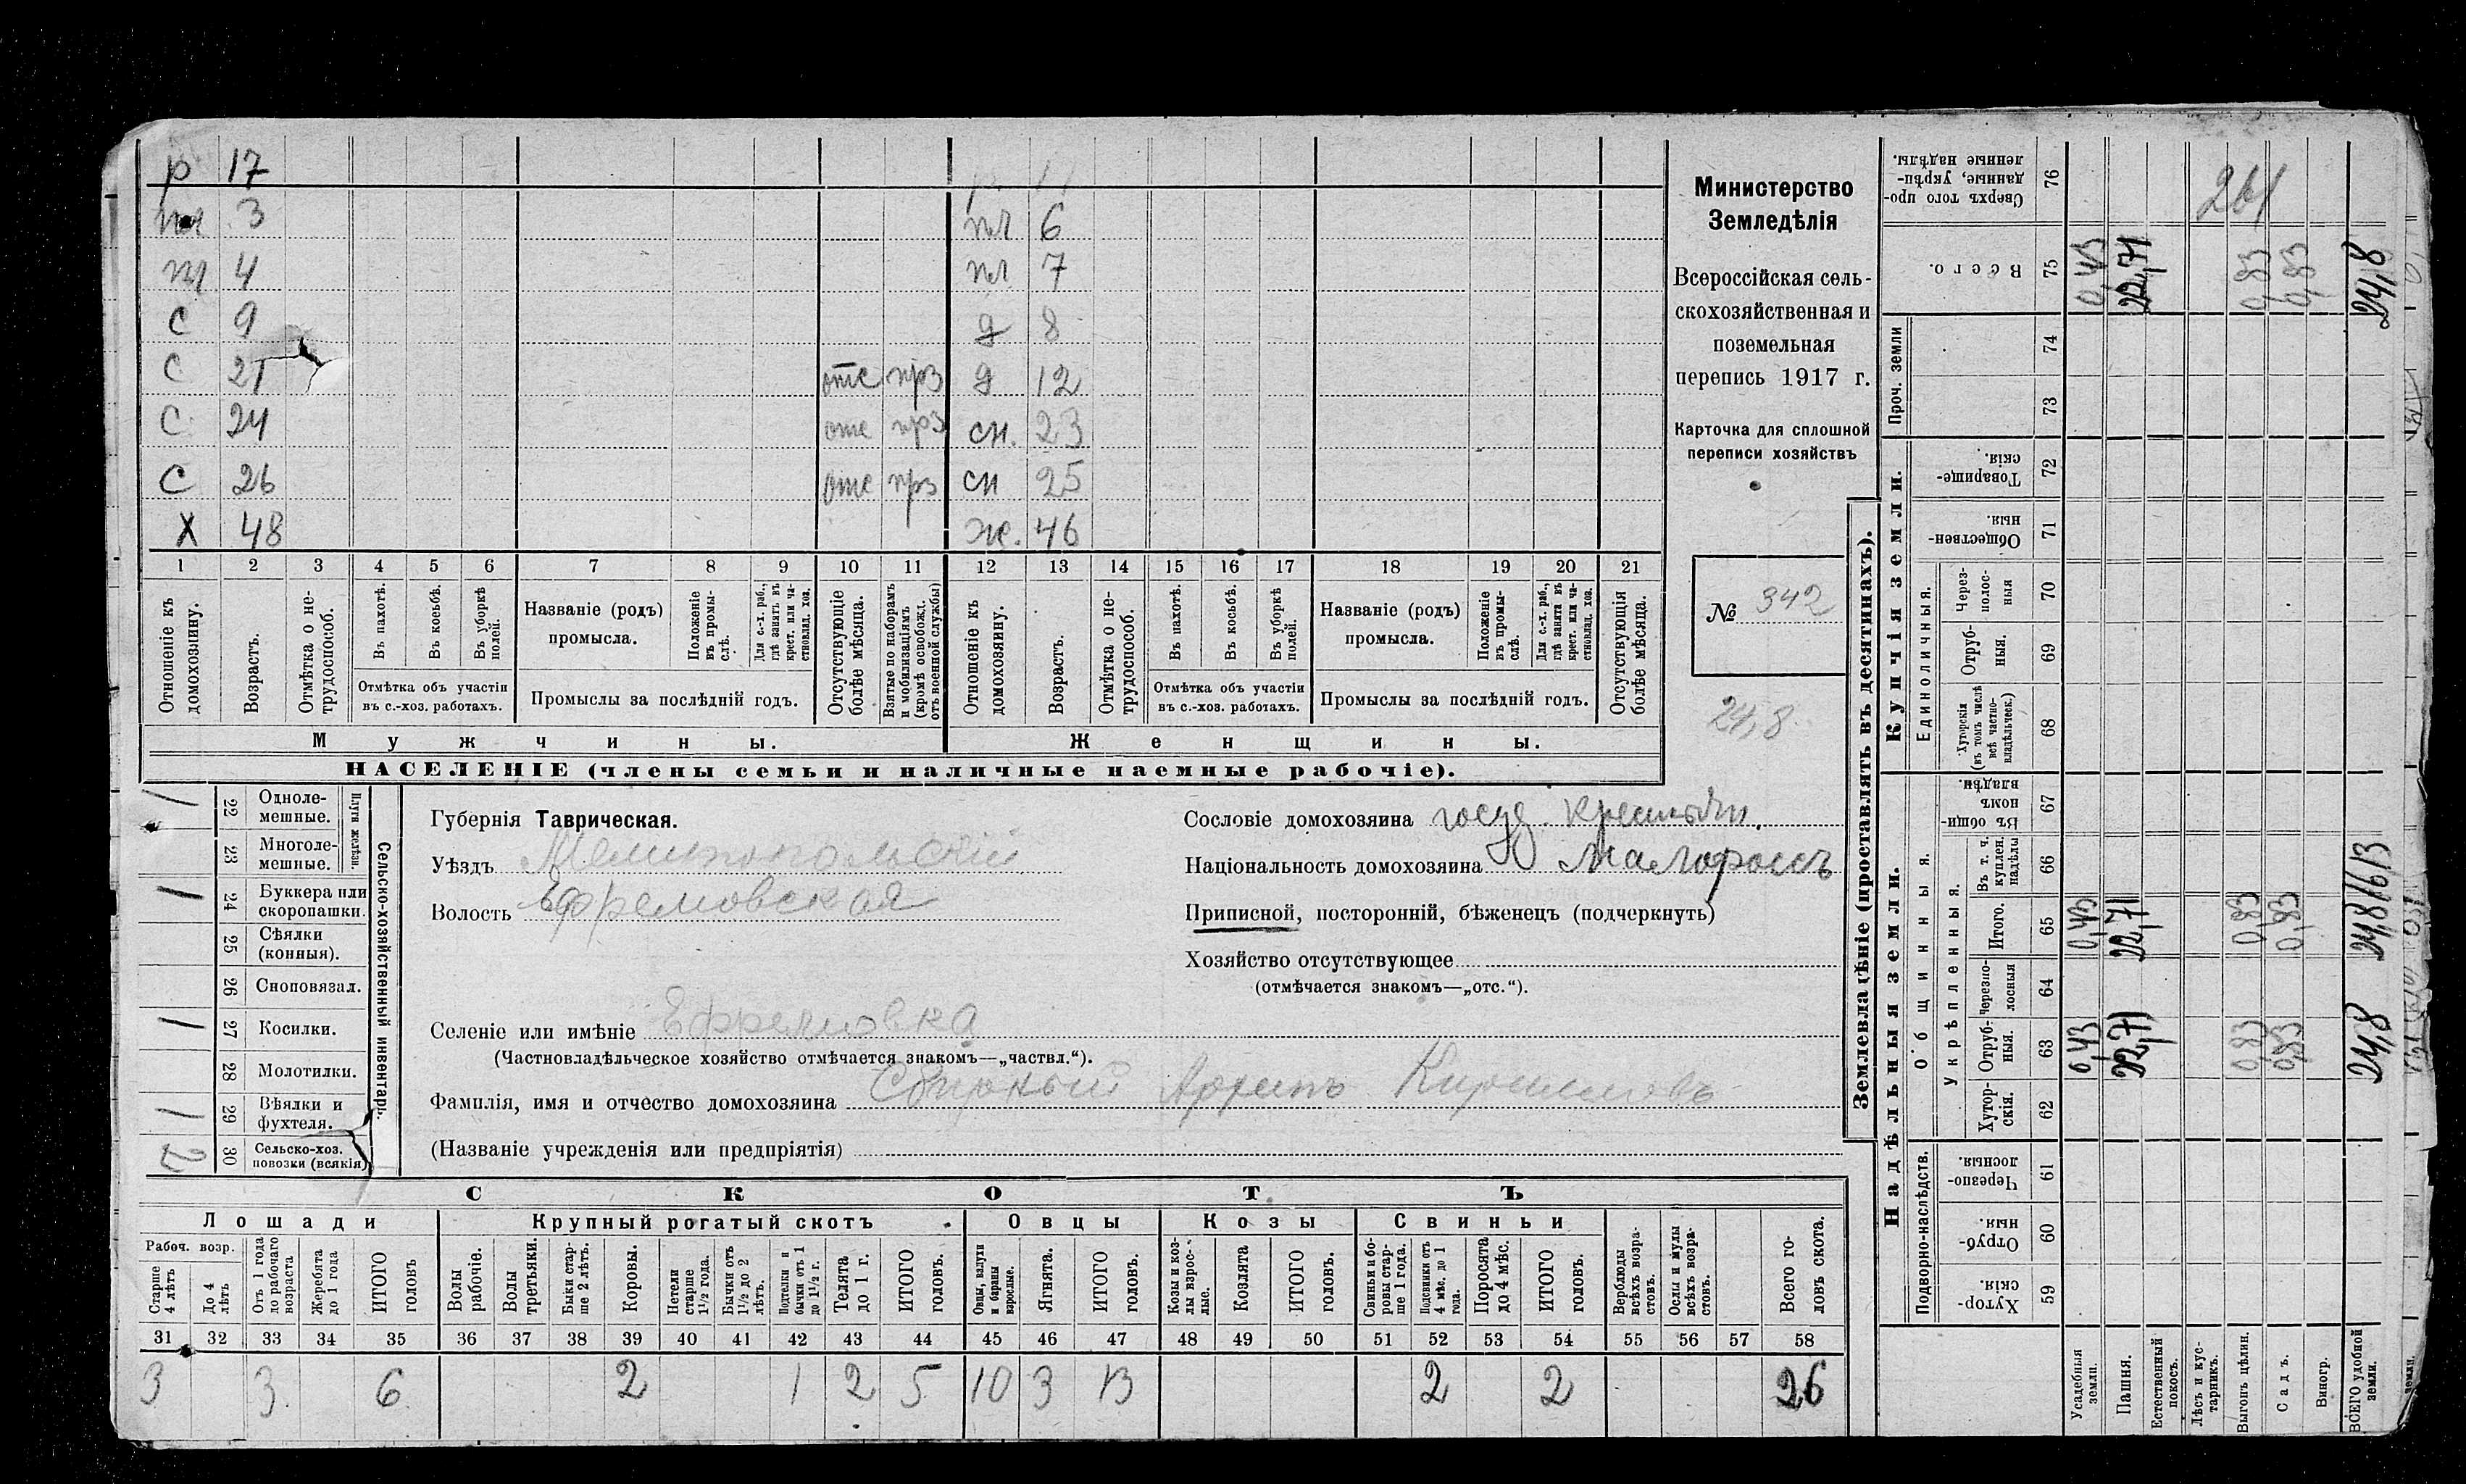 р 17
р. 17
пл 3 пл 6
пл 4 пл 7
с 9 д 8
с 21 отс прз д 12
с 24 отс прз сн. 23
с 26 отс прз сн 25
х 48 ж. 46
1 2 3 4 5 6 7 8 9 10 11 12 13 14 15 16 17 18 19 20 21
Отношеніе къ домохозяину.
Возрастъ.
Отмѣтка о не-трудоспособ.
Въ пахотѣ.
Въ косьбѣ.
Въ уборкѣ полей.
Отмѣтка объ участіи
въ с.-хоз. работахъ.
Названіе (родъ)
промысла.
Положеніе въ промы-слѣ.
Для с.-х. раб., гдѣ занятъ въ крест. или ча-стновлад. хоз.
Промыслы за послѣдній годъ.
Отсутствующіе болѣе мѣсяца.
Взятые по наборамъ и мобилизаціямъ (кромѣ освобожд. отъ военной службы)
Отношеніе къ домохозяину.
Возрастъ.
Отмѣтка о не-трудоспособ.
Въ пахотѣ.
Въ косьбѣ.
Въ уборкѣ полей.
Отмѣтка объ участіи
въ с.-хоз. работахъ.
Названіе (родъ)
промысла.
Положеніе въ промы-слѣ.
Для с.-х. раб., гдѣ занята въ крест. или ча-стновлад. хоз.
Промыслы за послѣдній годъ.
Отсутствующія болѣе мѣсяца.
Мужчины. Женщины.
НАСЕЛЕНІЕ (члены семьи и наличные наемные рабочіе).
Министерство
Земледѣлія
Всероссійская сель-
скохозяйственная и
поземельная
перепись 1917 г.
Карточка для сплошной
переписи хозяйствъ
№ 342
24,8
1 22 Одноле-мешные.
23 Многоле-мешные.
Плуги желѣзн.
1 24 Буккера или скоропашки.
25 Сѣялки (конныя).
26 Сноповязал.
1 27 Косилки.
28 Молотилки.
1 29 Вѣялки и фухтеля.
2 30 Сельско-хоз. повозки (всякія)
Сельско-хозяйственный инвентарь.
Губернія Таврическая.
Уѣздъ Мелитопольскій
Волость Ефремовская
Селеніе или имѣніе Ефремовка
(Частновладѣльческое хозяйство отмѣчается знакомъ—„частвл.“).
Фамилія, имя и отчество домохозяина Архипъ Кирилловъ
(Названіе учрежденія или предпріятія)
Сословіе домохозяина госуд. крестьян.
Національность домохозяина малороссъ
Приписной, посторонній, бѣженецъ (подчеркнуть)
Хозяйство отсутствующее
(отмѣчается знакомъ—„отс.“).
СКОТЪ
Лошади Крупный рогатый скотъ Овцы Козы Свиньи
Рабоч. возр.
Старше 4 лѣтъ
До 4 лѣтъ
Отъ 1 года до рабочаго возраста
Жеребята до 1 года
ИТОГО головъ
Волы рабочіе.
Волы третьяки.
Быки стар-ше 2 лѣтъ.
Коровы.
Нетели старше 1½ года.
Бычки отъ 1½ до 2 лѣтъ.
Подтелки и бычки отъ 1 до 1½ г.
Телята до 1 г.
ИТОГО головъ.
Овцы, валухи и бараны взрослые.
Ягнята.
ИТОГО головъ.
Козы и коз-лы взрос-лые.
Козлята
ИТОГО головъ.
Свиньи и бо-ровы стар-ше 1 года.
Подсвинки отъ 4 мѣс. до 1 года.
Поросята до 4 мѣс.
ИТОГО головъ.
Верблюды всѣхъ возра-стовъ.
Ослы и мулы всѣхъ возра-стовъ.
Всего го-ловъ скота.
31 32 33 34 35 36 37 38 39 40 41 42 43 44 45 46 47 48 49 50 51 52 53 54 55 56 57 58
3 3 6 2 1 2 5 10 3 13 2 2 26
Землевладѣніе (проставлять въ десятинахъ).
Надѣльныя земли. Купчія земли. Проч. земли
Подворно-наслѣдств.
Общинныя.
Укрѣпленныя.
Единоличныя.
Хутор-скія. 59
Отруб-ныя. 60
Черезпо-лосныя. 61
Хутор-скія. 62
Отруб-ныя. 63
Черезпо-лосныя 64
Итого. 65
Въ т. ч. куплен. надѣлы 66
Въ общин-номъ владѣн. 67
Хуторскія (въ томъ числѣ всѣ частно-владѣльческ.) 68
Отруб-ныя. 69
Через-полос-ныя 70
Обществен-ныя. 71
Товарище-скія. 72
73
74
Всего. 75
Сверхъ того про-данные, укрѣп-ленные надѣлы. 76
Усадебныя земли. 0,43 0,43 0,43
Пашня. 22,71 22,71 22,71
Естественный покосъ.
Лѣсъ и кус-тарникъ.
Выгонъ цѣлин. 0,83 0,83 0,83
Садъ. 0,83 0,83 0,83
Виногр.
ВСЕГО удобной земли. 24,8 24,8 24,8
земли.